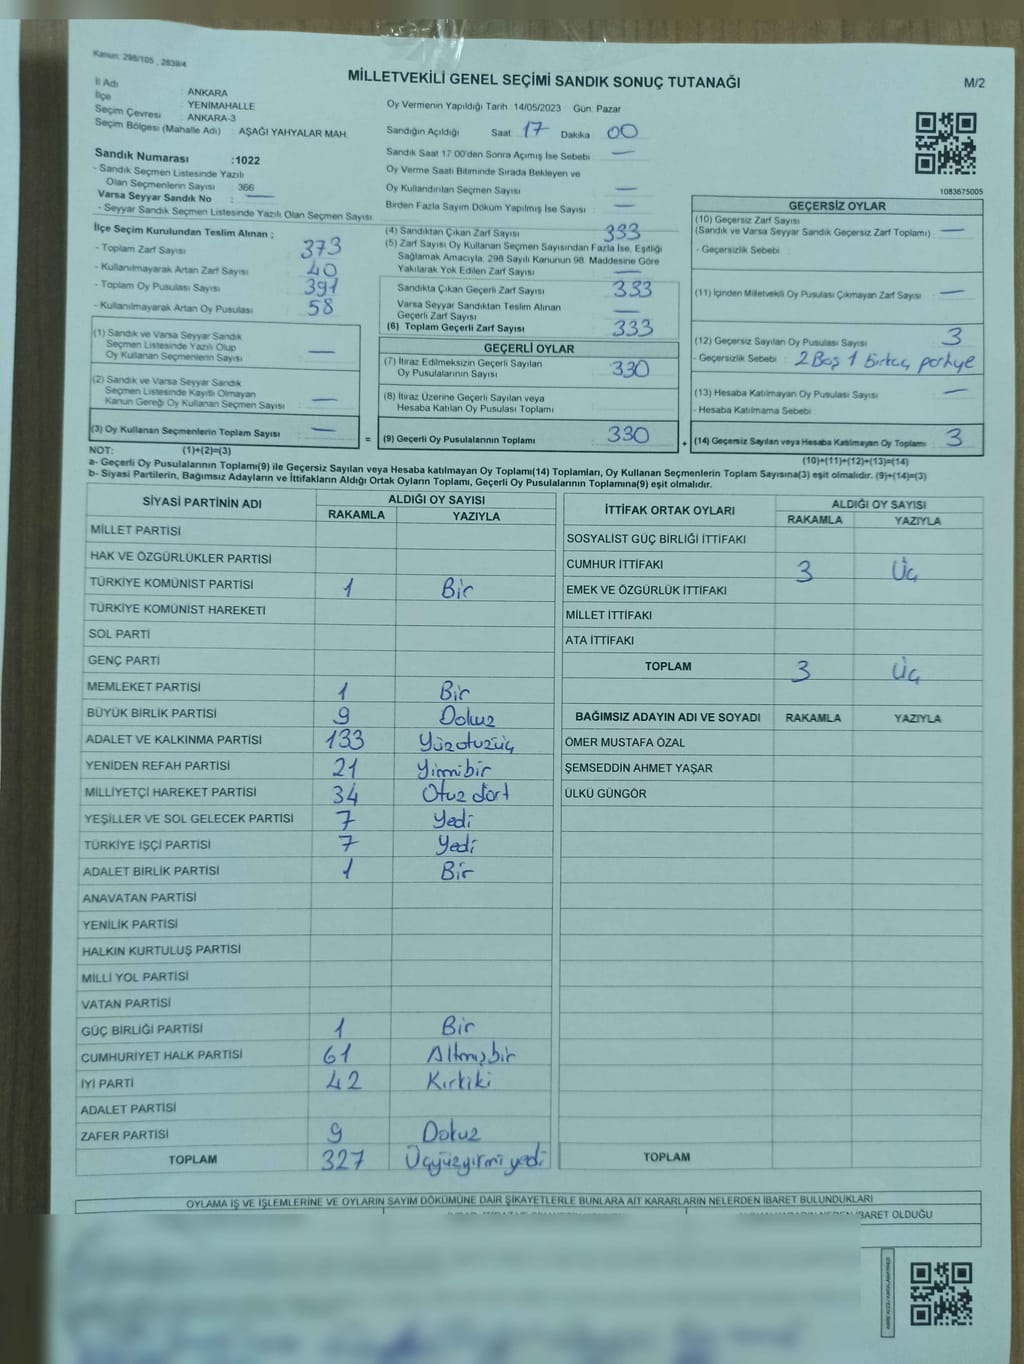 Kanun: 298/105, 2839/4
MİLLETVEKİLİ GENEL SEÇİMİ SANDIK SONUÇ TUTANAĞI
M/2
İl Adı ANKARA
İlçe YENİMAHALLE
Seçim Çevresi : ANKARA-3
Seçim Bölgesi (Mahalle Adı) : AŞAĞI YAHYALAR MAH.
Sandık Numarası :1022
- Sandık Seçmen Listesinde Yazılı
Olan Seçmenlerin Sayısı : 366
Varsa Seyyar Sandık No : —
- Seyyar Sandık Seçmen Listesinde Yazılı Olan Seçmen Sayısı
Oy Vermenin Yapıldığı Tarih : 14/05/2023 Gün: Pazar
Sandığın Açıldığı Saat 17 Dakika 00
Sandık Saat 17:00'den Sonra Açımış İse Sebebi : —
Oy Verme Saati Bitiminde Sırada Bekleyen ve
Oy Kullandırılan Seçmen Sayısı : —
Birden Fazla Sayım Döküm Yapılmış İse Sayısı : —
1083675005
İlçe Seçim Kurulundan Teslim Alınan ;
- Toplam Zarf Sayısı : 373
- Kullanılmayarak Artan Zarf Sayısı : 40
- Toplam Oy Pusulası Sayısı : 391
- Kullanılmayarak Artan Oy Pusulası : 58
(1) Sandık ve Varsa Seyyar Sandık
Seçmen Listesinde Yazılı Olup
Oy Kullanan Seçmenlerin Sayısı : —
(2) Sandık ve Varsa Seyyar Sandık
Seçmen Listesinde Kayıtlı Olmayan
Kanun Gereği Oy Kullanan Seçmen Sayısı : —
(3) Oy Kullanan Seçmenlerin Toplam Sayısı : —
(4) Sandıktan Çıkan Zarf Sayısı : 333
(5) Zarf Sayısı Oy Kullanan Seçmen Sayısından Fazla İse, Eşitliği
Sağlamak Amacıyla, 298 Sayılı Kanunun 98. Maddesine Göre
Yakılarak Yok Edilen Zarf Sayısı : —
Sandıkta Çıkan Geçerli Zarf Sayısı : 333
Varsa Seyyar Sandıktan Teslim Alınan
Geçerli Zarf Sayısı : —
(6) Toplam Geçerli Zarf Sayısı : 333
GEÇERLİ OYLAR
(7) İtiraz Edilmeksizin Geçerli Sayılan
Oy Pusulalarının Sayısı : 330
(8) İtiraz Üzerine Geçerli Sayılan veya
Hesaba Katılan Oy Pusulası Toplamı :
= (9) Geçerli Oy Pusulalarının Toplamı : 330
GEÇERSİZ OYLAR
(10) Geçersiz Zarf Sayısı
(Sandık ve Varsa Seyyar Sandık Geçersiz Zarf Toplamı) : —
- Geçersizlik Sebebi :
(11) İçinden Milletvekili Oy Pusulası Çıkmayan Zarf Sayısı : —
(12) Geçersiz Sayılan Oy Pusulası Sayısı : 3
- Geçersizlik Sebebi : 2 Boş 1 birkaç partiye
(13) Hesaba Katılmayan Oy Pusulası Sayısı : —
- Hesaba Katılmama Sebebi :
+ (14) Geçersiz Sayılan veya Hesaba Katılmayan Oy Toplamı : 3
NOT: (1)+(2)=(3)
(10)+(11)+(12)+(13)=(14)
a- Geçerli Oy Pusulalarının Toplamı(9) ile Geçersiz Sayılan veya Hesaba katılmayan Oy Toplamı(14) Toplamları, Oy Kullanan Seçmenlerin Toplam Sayısına(3) eşit olmalıdır. (9)+(14)=(3)
b- Siyasi Partilerin, Bağımsız Adayların ve İttifakların Aldığı Ortak Oyların Toplamı, Geçerli Oy Pusulalarının Toplamına(9) eşit olmalıdır.
SİYASİ PARTİNİN ADI ALDIĞI OY SAYISI
RAKAMLA YAZIYLA
MİLLET PARTİSİ
HAK VE ÖZGÜRLÜKLER PARTİSİ
TÜRKİYE KOMÜNİST PARTİSİ 1 Bir
TÜRKİYE KOMÜNİST HAREKETİ
SOL PARTİ
GENÇ PARTİ
MEMLEKET PARTİSİ 1 Bir
BÜYÜK BİRLİK PARTİSİ 9 Dokuz
ADALET VE KALKINMA PARTİSİ 133 Yüzotuzüç
YENİDEN REFAH PARTİSİ 21 Yirmibir
MİLLİYETÇİ HAREKET PARTİSİ 34 Otuz dört
YEŞİLLER VE SOL GELECEK PARTİSİ 7 Yedi
TÜRKİYE İŞÇİ PARTİSİ 7 Yedi
ADALET BİRLİK PARTİSİ 1 Bir
ANAVATAN PARTİSİ
YENİLİK PARTİSİ
HALKIN KURTULUŞ PARTİSİ
MİLLİ YOL PARTİSİ
VATAN PARTİSİ
GÜÇ BİRLİĞİ PARTİSİ 1 Bir
CUMHURİYET HALK PARTİSİ 61 Altmışbir
İYİ PARTİ 42 Kırkiki
ADALET PARTİSİ
ZAFER PARTİSİ 9 Dokuz
TOPLAM 327 Üçyüzyirmi yedi
İTTİFAK ORTAK OYLARI ALDIĞI OY SAYISI
RAKAMLA YAZIYLA
SOSYALİST GÜÇ BİRLİĞİ İTTİFAKI
CUMHUR İTTİFAKI 3 Üç
EMEK VE ÖZGÜRLÜK İTTİFAKI
MİLLET İTTİFAKI
ATA İTTİFAKI
TOPLAM 3 Üç
BAĞIMSIZ ADAYIN ADI VE SOYADI RAKAMLA YAZIYLA
ÖMER MUSTAFA ÖZAL
ŞEMSEDDİN AHMET YAŞAR
ÜLKÜ GÜNGÖR
TOPLAM
OYLAMA İŞ VE İŞLEMLERİNE VE OYLARIN SAYIM DÖKÜMÜNE DAİR ŞİKAYETLERLE BUNLARA AİT KARARLARIN NELERDEN İBARET BULUNDUKLARI
İBARET OLDUĞU